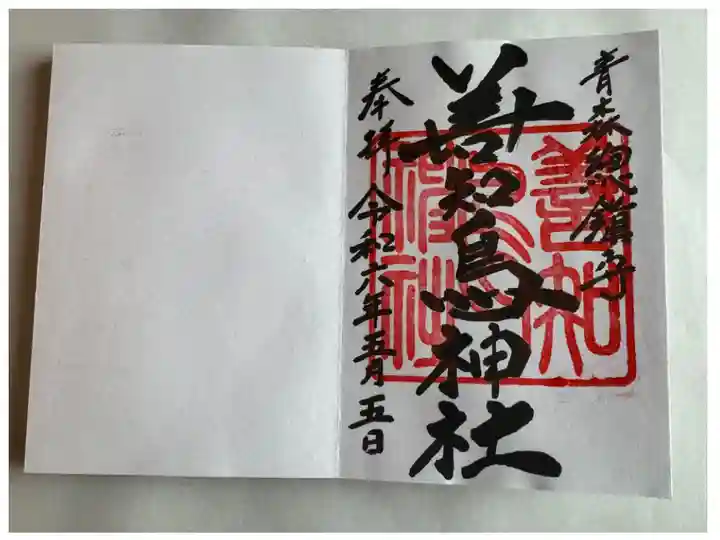 青森總鎮守
善知鳥神社
奉拝 令和六年五月五日
善知
鳥
神社